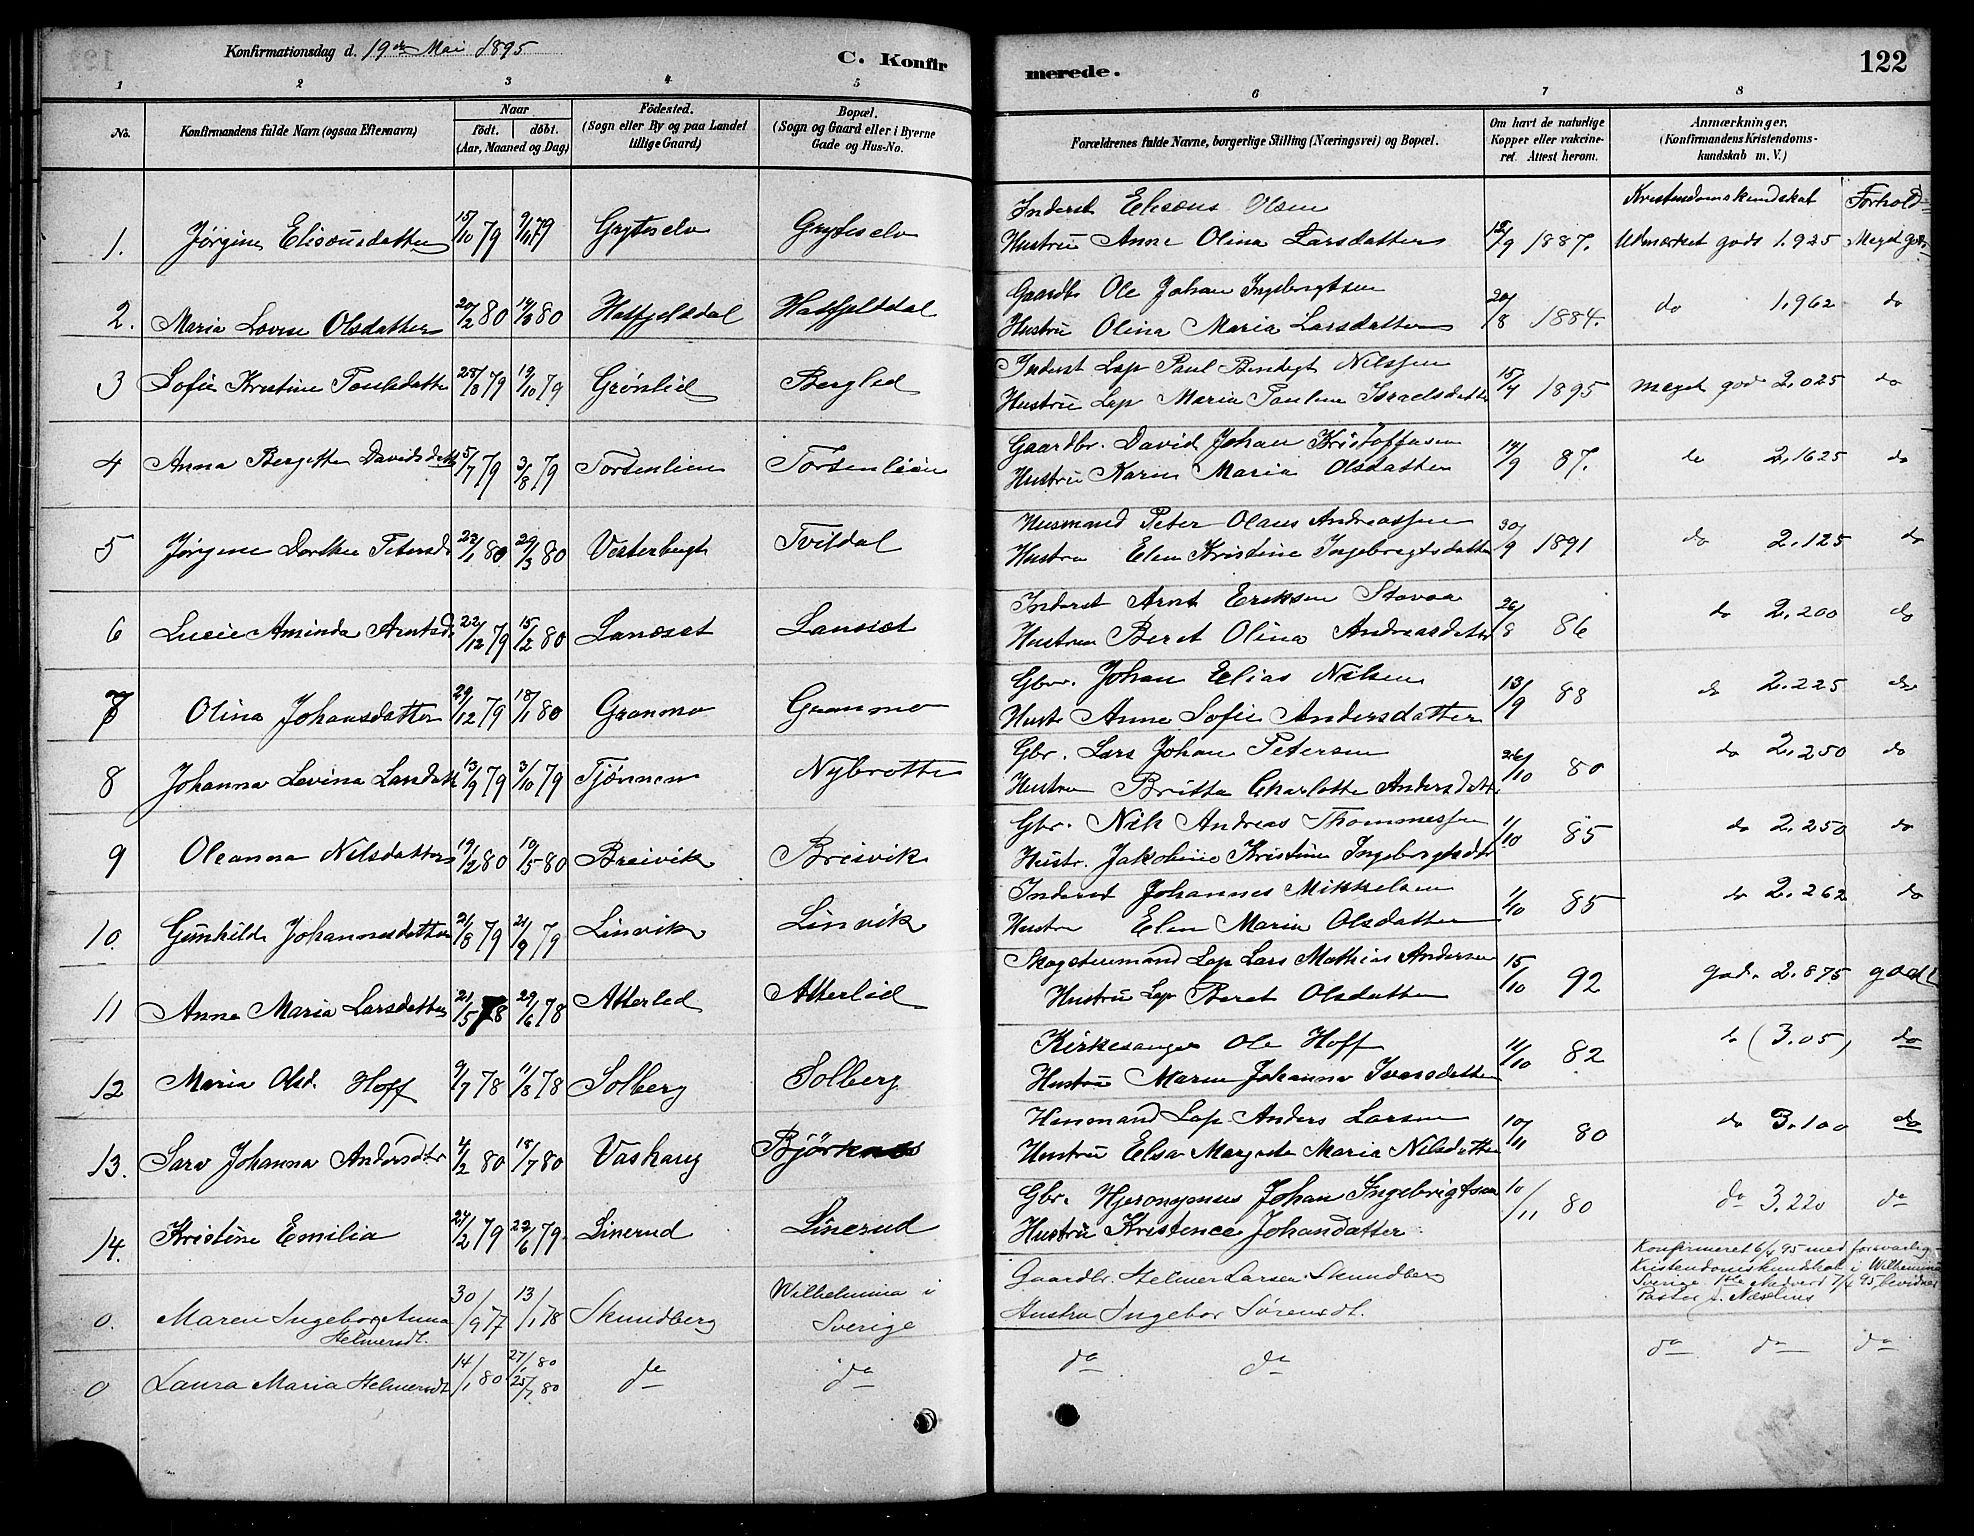 Konfirmationsdag d. 19de Mai 1895
C. Konfirmerede.
122
1 2 3 4 5 6 7 8
No. Konfirmandens fulde Navn (ogsaa Efternavn) Naar født. døbt. (Aar, Maaned og Dag) Födested. (Sogn eller By og paa Landet tillige Gaard) Bopæl. (Sogn og Gaard eller i Byerne Gade og Hus-No. Forældrenes fulde Navne, borgerlige Stilling (Næringsvei) og Bopæl. Om havt de naturlige Kopper eller vakcineret. Attest herom. Anmærkninger, (Konfirmandens Kristendomskundskab m. V.)
Kristendomskundskab Forhold
Inderst Eliseus Olsen
1. Jørgine Eliseusdatter 15/10 79 9/11 79 Gryteselv Gryteselv Hustru Anne Olina Larsdatter 12/9 1887. Udmærket godt 1.925 Meget godt
Gaardbr Ole Johan Ingebrigtsen
2. Maria Lovise Olsdatter 20/2 80 14/3 80 Hatfjeldal Hatfjelddal Hustru Olina Maria Larsdatter 20/8 1884. do 1.962 do
Inderst Lap Paul Bendigt Nilssen
3 Sofie Kristine Paulsdatter 28/8 79 19/10 79 Grønlid Berglid Hustru Lap Maria Pauline Israelsdatter 15/4 1895 meget god 2.025 do
Gaardbr. David Johan Kristoffersen
4 Anna Bergitte Davidsdatt 5/7 79 3/8 79 Torsenlien Torsenlien Hustru Karen Maria Olsdatter 14/9 87. do 2.1625 do
Husmand Peter Olaus Andreassen
5 Jørgine Dorthea Petersd 22/1 80 29/3 80 Vesterbugt Tvildal Hustru Elen Kristine Ingebrigtsdatter 30/9 1891 do 2.125 do
Inderst Arnt Eriksen Stavaa
6 Lucie Aminda Arntsd. 22/12 79 15/2 80 Lanæset Lanæset Hustru Beret Olina Andreasdatter 26/8 86 do 2.200 do
Gbr. Johan Elias Nilsen
7 Olina Johansdatter 29/12 79 18/1 80 Granmo Granmo Hustr Anne Sofie Andersdatter 13/9 88 do 2.225 do
Gbr. Lars Johan Petersen
8 Johanna Levina Larsdatt 13/9 79 3/10 79 Tjønnem Nybrotte Hustru Britta Charlotte Andersdatt. 26/10 80 do 2.250 do
Gbr. Nils Andreas Thommessen
9 Oleanna Nilsdatter 19/2 80 10/5 80 Breivik Breivik Hustr. Jakobine Kristine Ingebrigtsdtr 1/10 85 do 2.250 do
Inderst Johannes Mikkelsen
10. Gunhilde Johannesdatter 21/8 79 21/9 79 Linvik Linvik Hustru Elen Maria Olsdatter 1/10 85 do 2.262 do
Lap Lars Mathias Andersen
11 Anne Maria Larsdatter 21/5 78 29/6 78 Atterlid Atterlid Hustru Lap Beret Olsdatter 15/10 92 god. 2.875 godt
Kirkesanger Ole Hoff
12 Maria Olsd. Hoff 9/7 78 11/8 78 Solberg Solberg Hustru Maren Johanna Ivarsdatter 11/10 82 do (3.05) do
Husmand Lap Anders Larsen
13. Sara Johanna Andersdtr 4/2 80 18/7 80 Vashaug Björknes Hustru Elsa Margrete Maria Nilsdatter 10/11 80 do 3.100 do
Gbr. Hjeronymus Johan Ingebrigtsen
14. Kristine Emilia 24/2 79 22/6 79. Linerud Linerud Hustru Kristence Johandatter 10/11 80 do 3.220 do
Konfirmeret 6/4 95 med forsvarlig
Kristendomskundskab i Wilhelmina
Sverige 7/6 95
Pastor J. Næslius
Gaardbr. Helmer Larsen Skundberg
0. Maren Ingeborg Anna Helmersdt. 30/9 77 13/1 78 Skundberg Wilhelmina i Sverige Hustru Ingebor Sørensdt.
0 Laura Maria Helmersdt 14/1 80 27/1 80 25/7 80 do do do do do do do